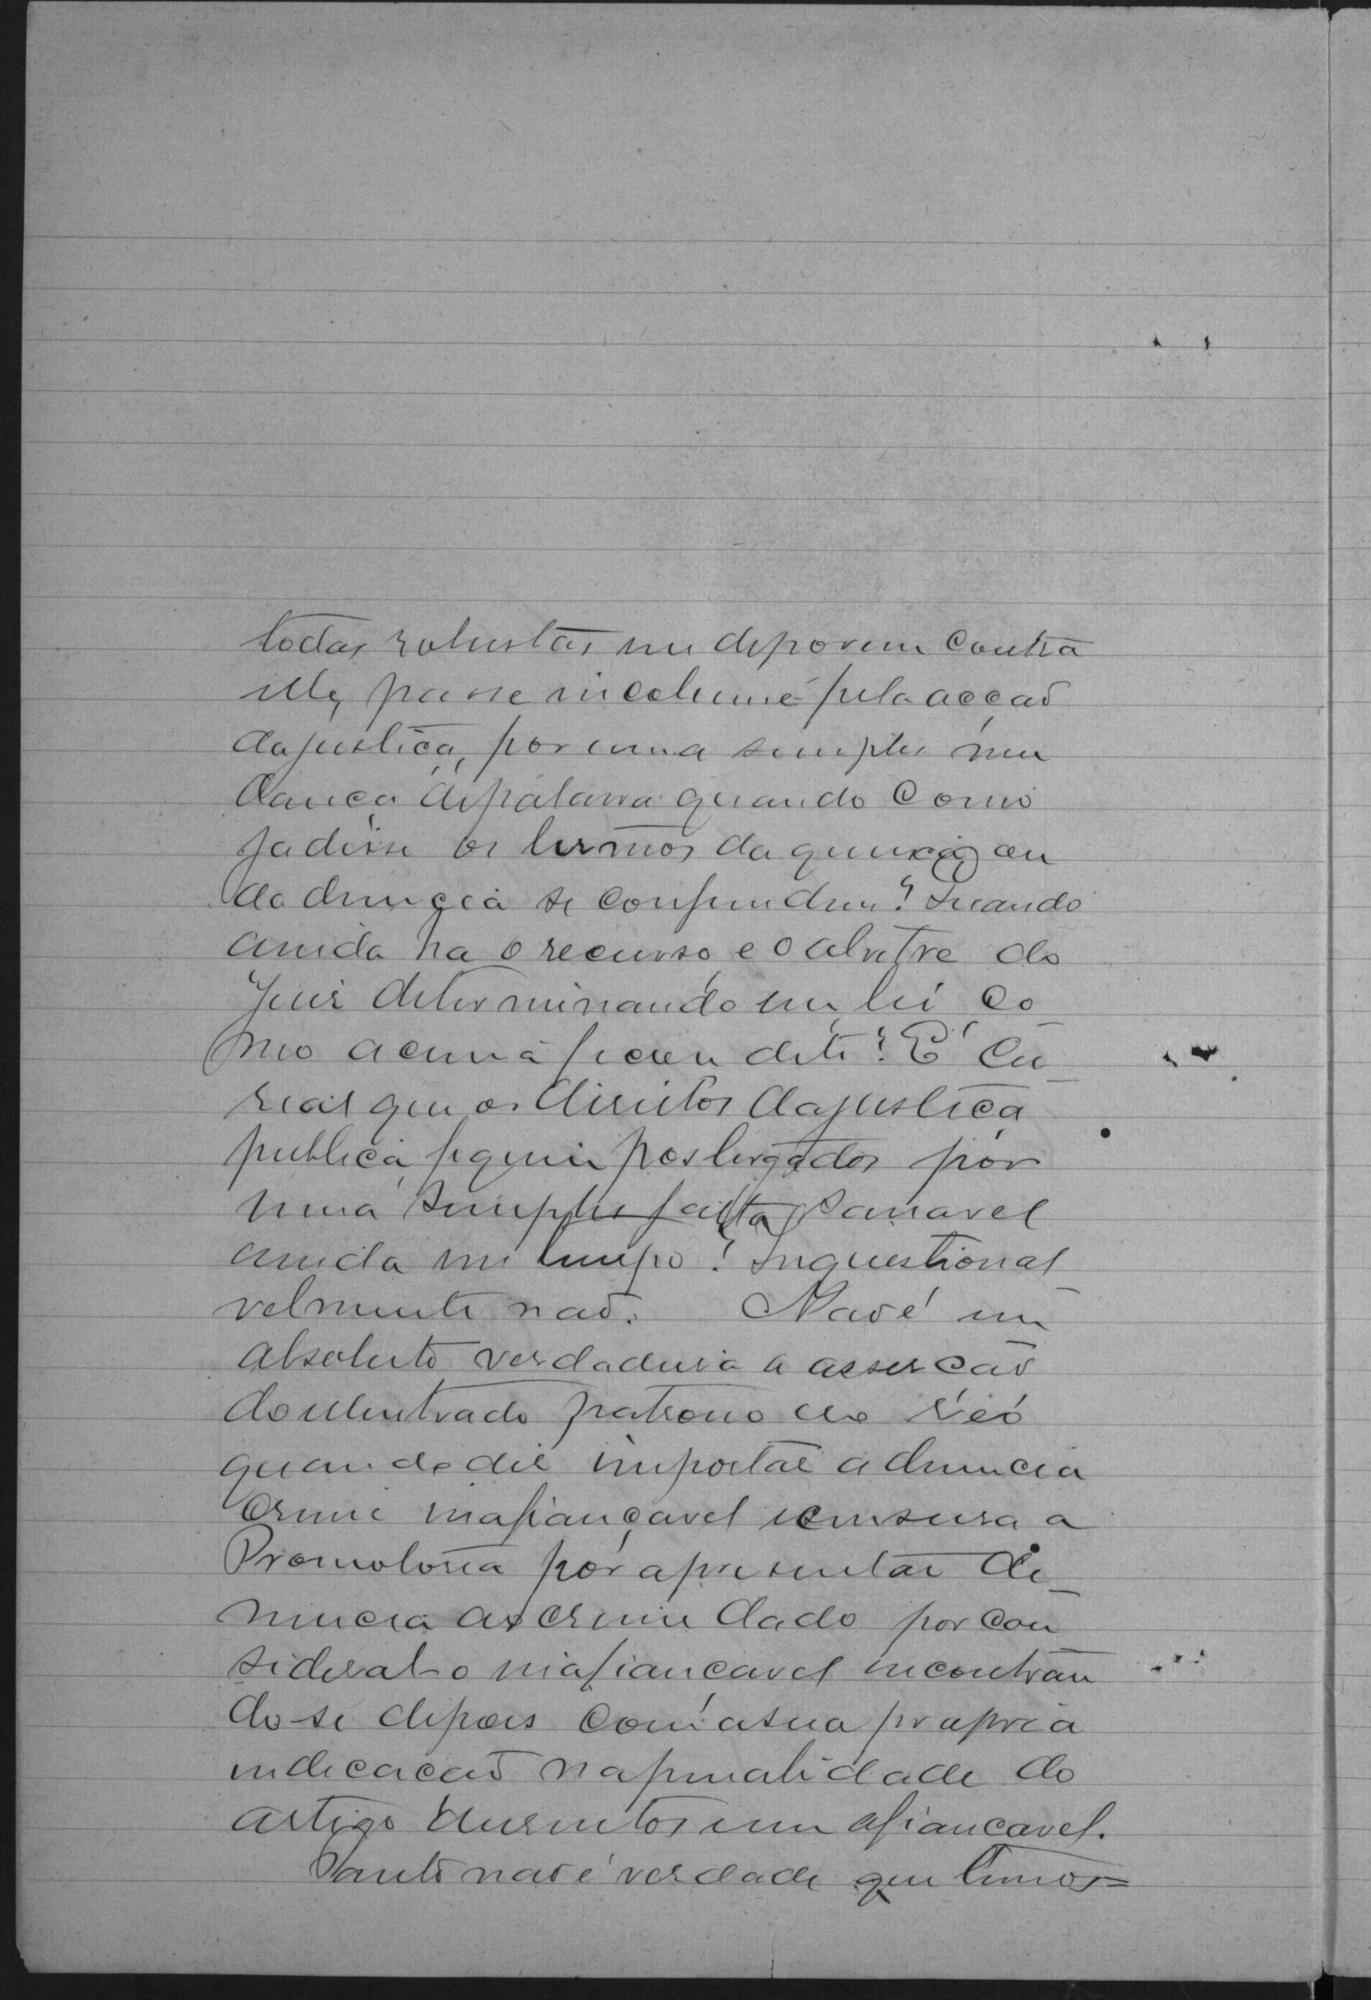 todas robustas em deporem contra
elle, passe incolume pela acção
da justiça, por uma simples mu
dança de palavra quando como
ja disse os termos da queixa ou
da denuncia se confundem? Quando
ainda ha o recurso e o alvitre do
Juiz determinando em lei co
mo acima ficou dito? É cu
rial que os direitos da justiça
publica, fiquem postergados por
uma simples falta sanavel
ainda em tempo? Inquestiona
velmente não. Não é em
absoluto verdadeira a asserção
do illustrado patrono do réo
quando diz importar a denuncia
crime inafiançavel e censura a
Promotoria por apresentar de
nuncia ao crime dado por con
sideral-o inafiançavel incontran
do-se depois com a sua propria
indicação na penalidade do
artigo duzentos e um afiançavel.
Tanto não é verdade que temos